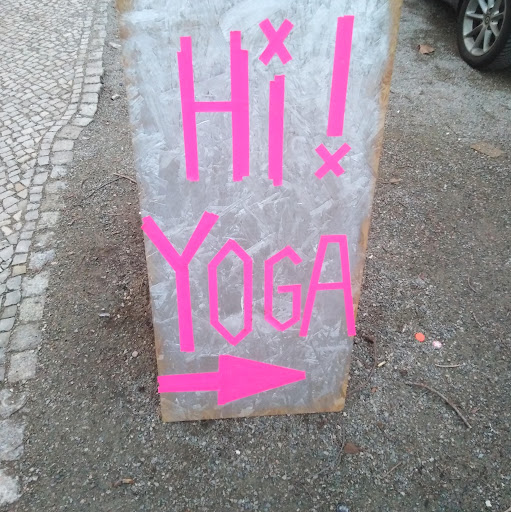 Hi!
YOGA